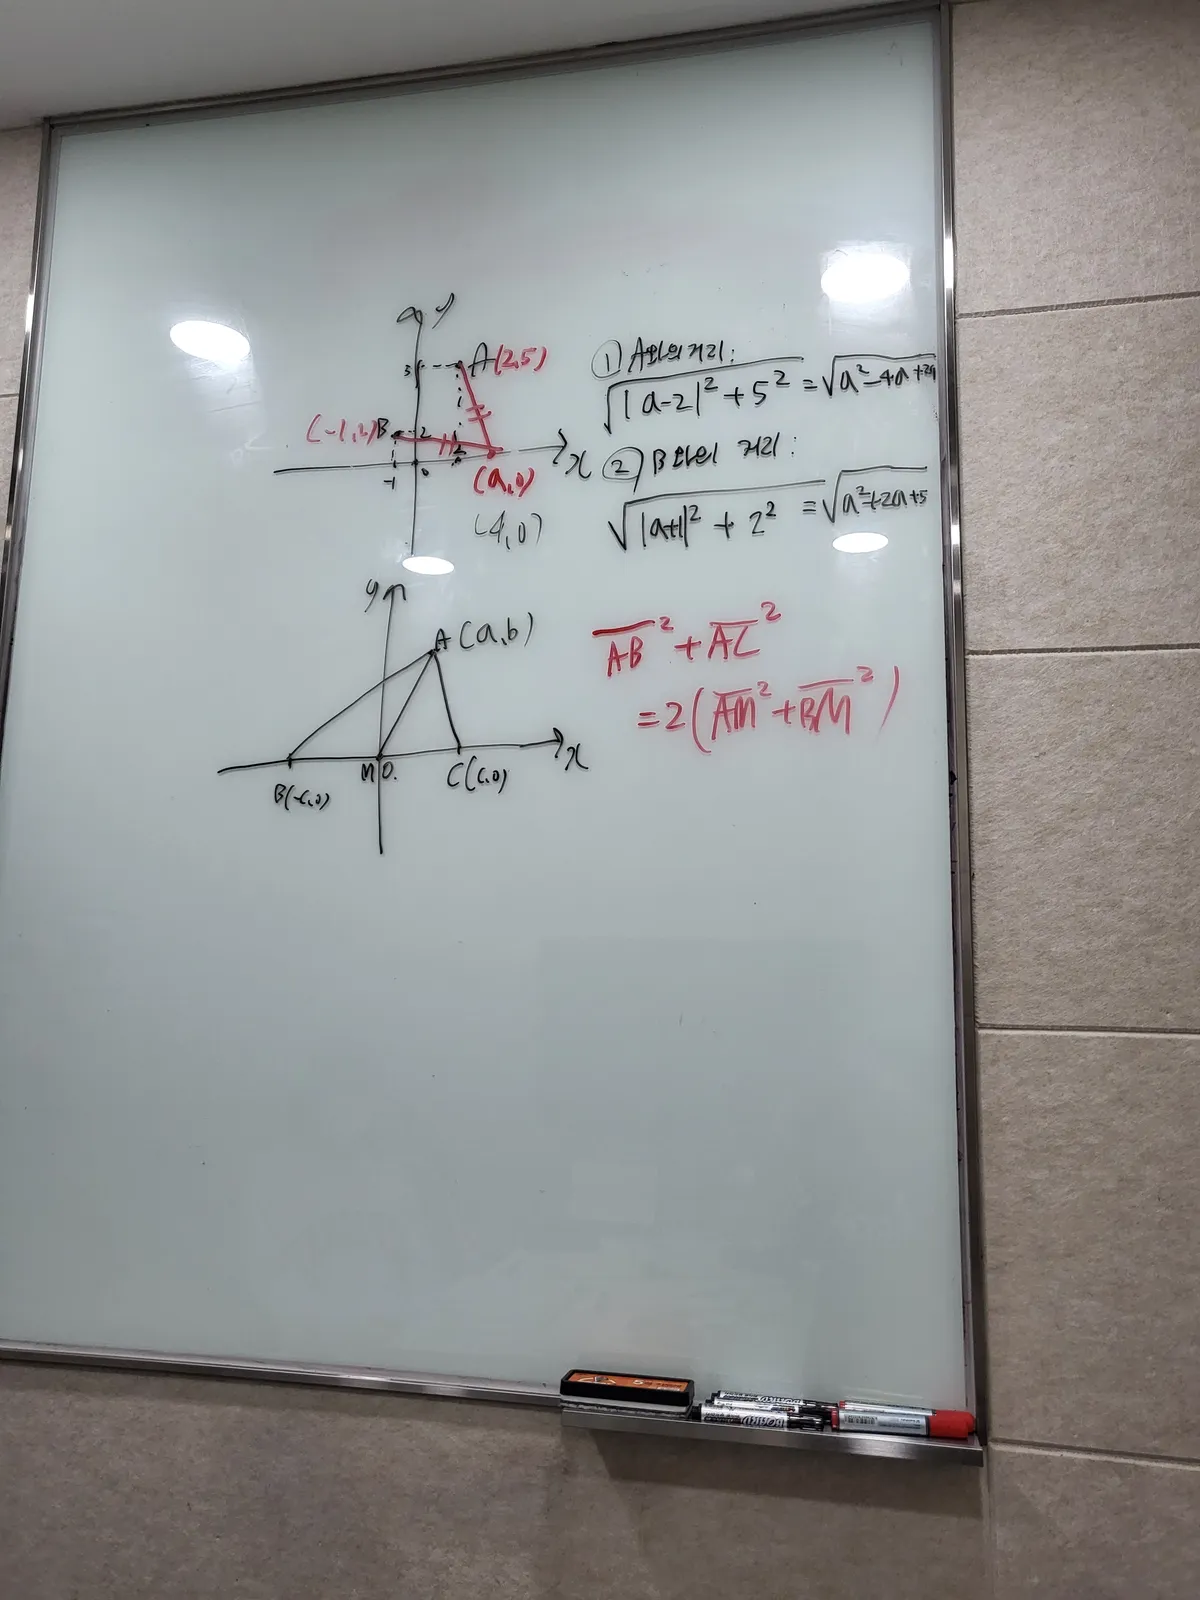 y
3
A(2,5)
(-1,2)B
2
-1
0
2
x
(a,0)
(4,0)
① A와의 거리:
√|a-2|²+5² = √a²-4a+29
② B와의 거리:
√|a+1|²+2² = √a²+2a+5
y
A(a,b)
B(-c,0)
M
O
C(c,0)
x
AB²+AC²
=2(AM²+BM²)